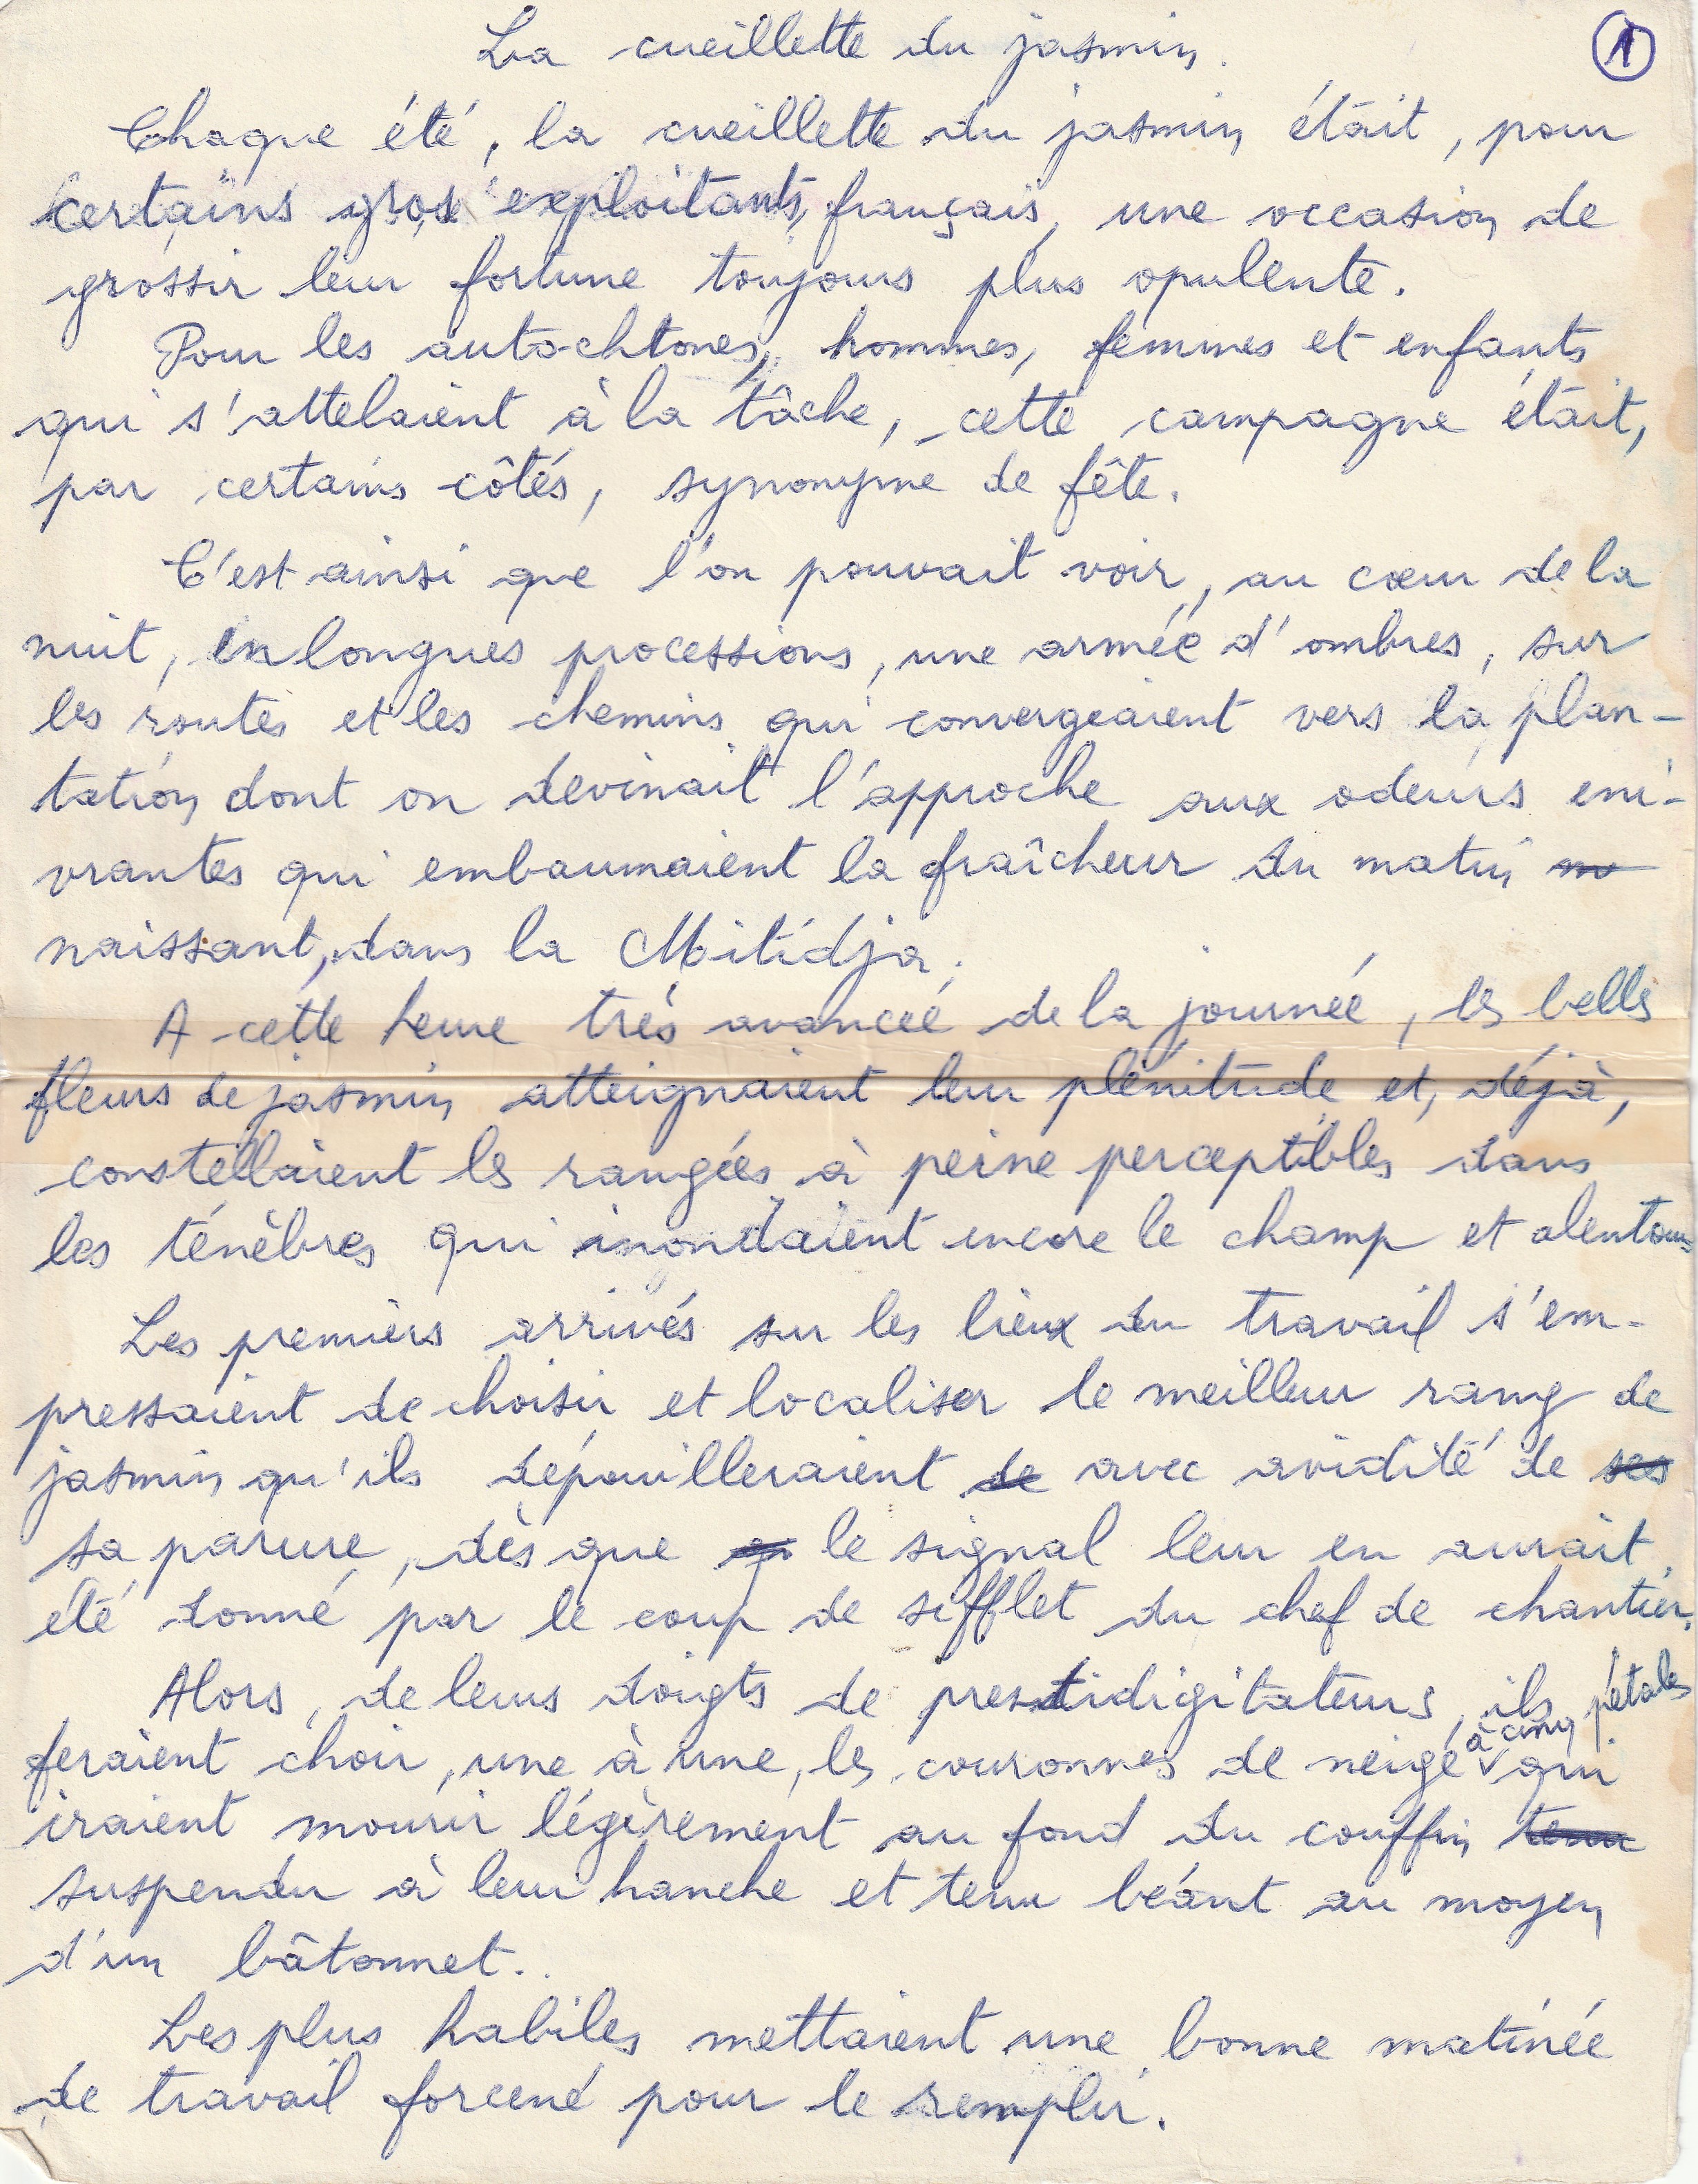 La cueillette du jasmin.
1
Chaque été, la cueillette du jasmin était, pour
certains gros exploitants français, une occasion de
grossir leur fortune toujours plus opulente.
Pour les autochtones, hommes, femmes et enfants
qui s'attelaient à la tâche, cette campagne était,
par certains côtés, synonyme de fête.
C'est ainsi que l'on pouvait voir, au cœur de la
nuit, en longues processions, une armée d'ombres, sur
les routes et les chemins qui convergeaient vers la plan-
tation dont on devinait l'approche aux odeurs eni-
vrantes qui embaumaient la fraîcheur du matin
naissant, dans la Mitidja.
A cette heure très avancée de la journée, les belles
fleurs de jasmin atteignaient leur plénitude et, déjà,
constellaient les rangées à peine perceptibles dans
les ténèbres qui inondaient encore le champ et alentours
Les premiers arrivés sur les lieux du travail s'em-
pressaient de choisir et localiser le meilleur rang de
jasmin qu'ils dépouilleraient de avec avidité de ses
sa parure, dès que q le signal leur en aurait
été donné par le coup de sifflet du chef de chantier.
Alors, de leurs doigts de prestidigitateurs, ils
feraient choir, une à une, les couronnes de neige à cinq pétales qui
iraient mourir légèrement au fond du couffin tenu
suspendu à leur hanche et tenu béant au moyen
d'un bâtonnet.
Les plus habiles mettaient une bonne matinée
de travail forcené pour le remplir.